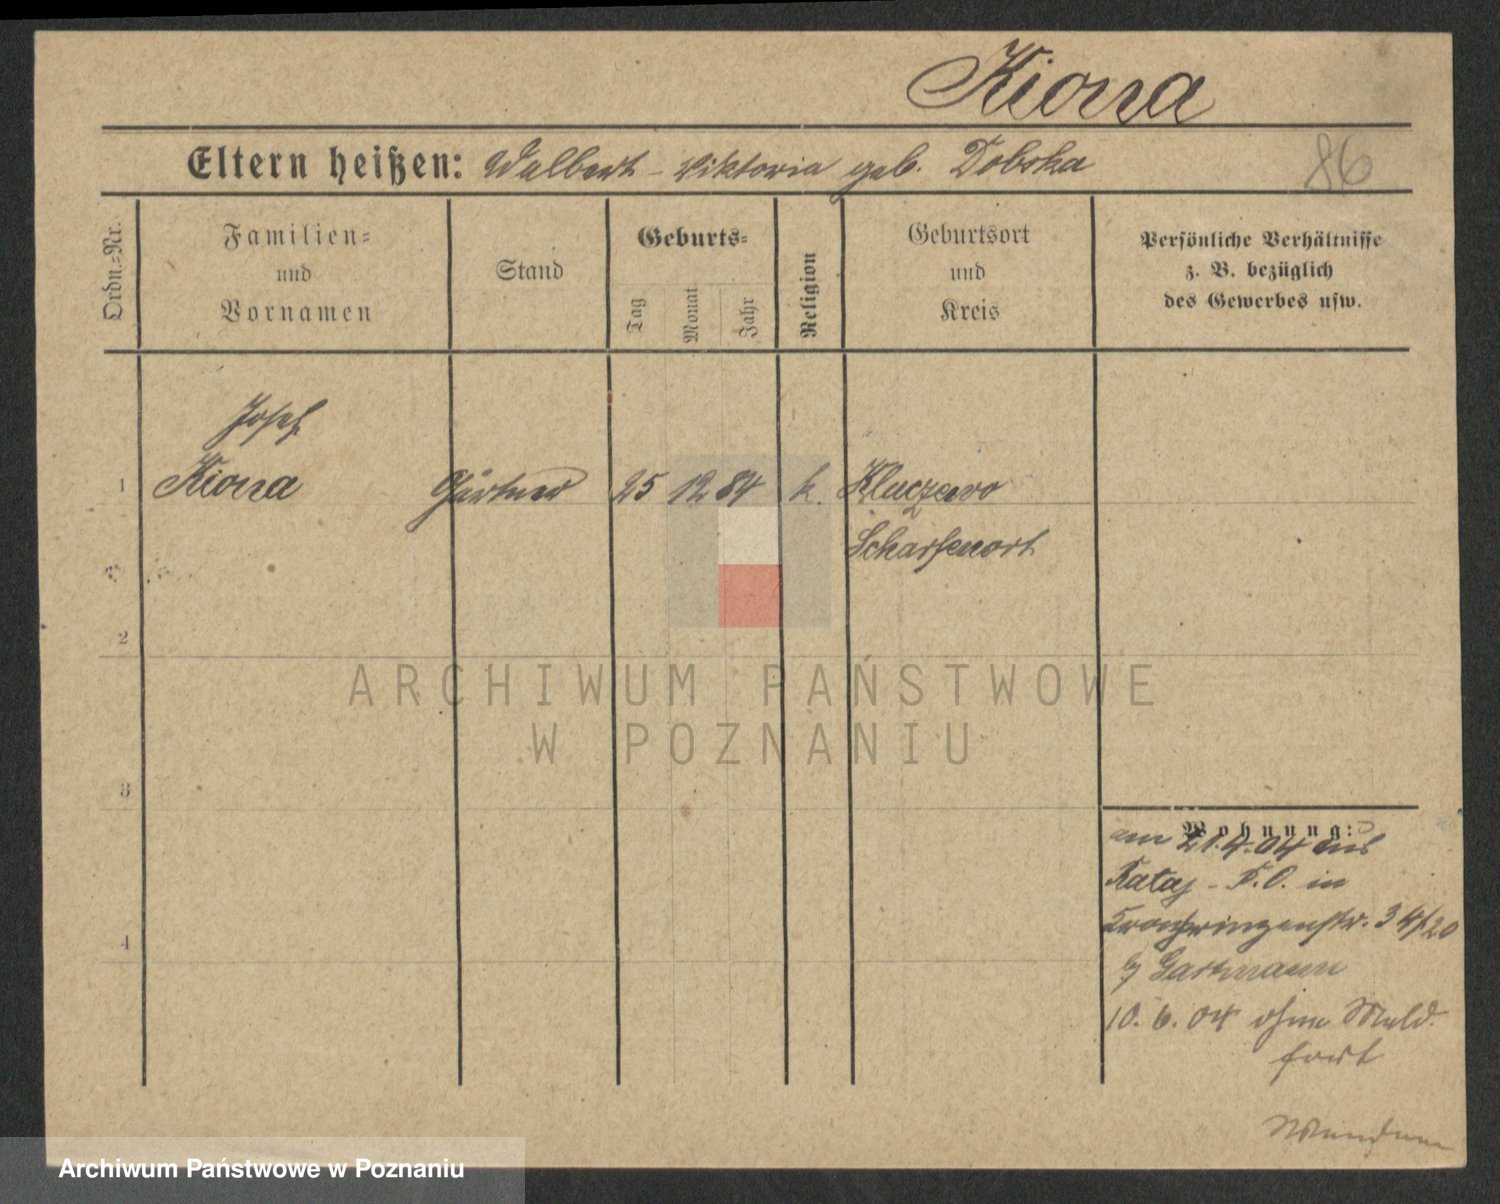 Kiona
Eltern heißen: Walbert - Viktoria geb. Dobska
86
Ordn.-Nr.
Familien-
und
Vornamen
Stand
Geburts-
Tag
Monat
Jahr
Religion
Geburtsort
und
Kreis
Persönliche Verhältnisse
z. B. bezüglich
des Gewerbes usw.
Josef
1 Kiona Gärtner 25 12 84 k. Kluczewo
Scharfenort
2
ARCHIWUM PAŃSTWOWE
W POZNANIU
3
Wohnung:
am 21.4.04 aus
Rataj - P.O. in
Kronprinzenstr. 34/20
b/ Gartmann
4
10. 6. 04 ohne Meld.
fort
Archiwum Państwowe w Poznaniu